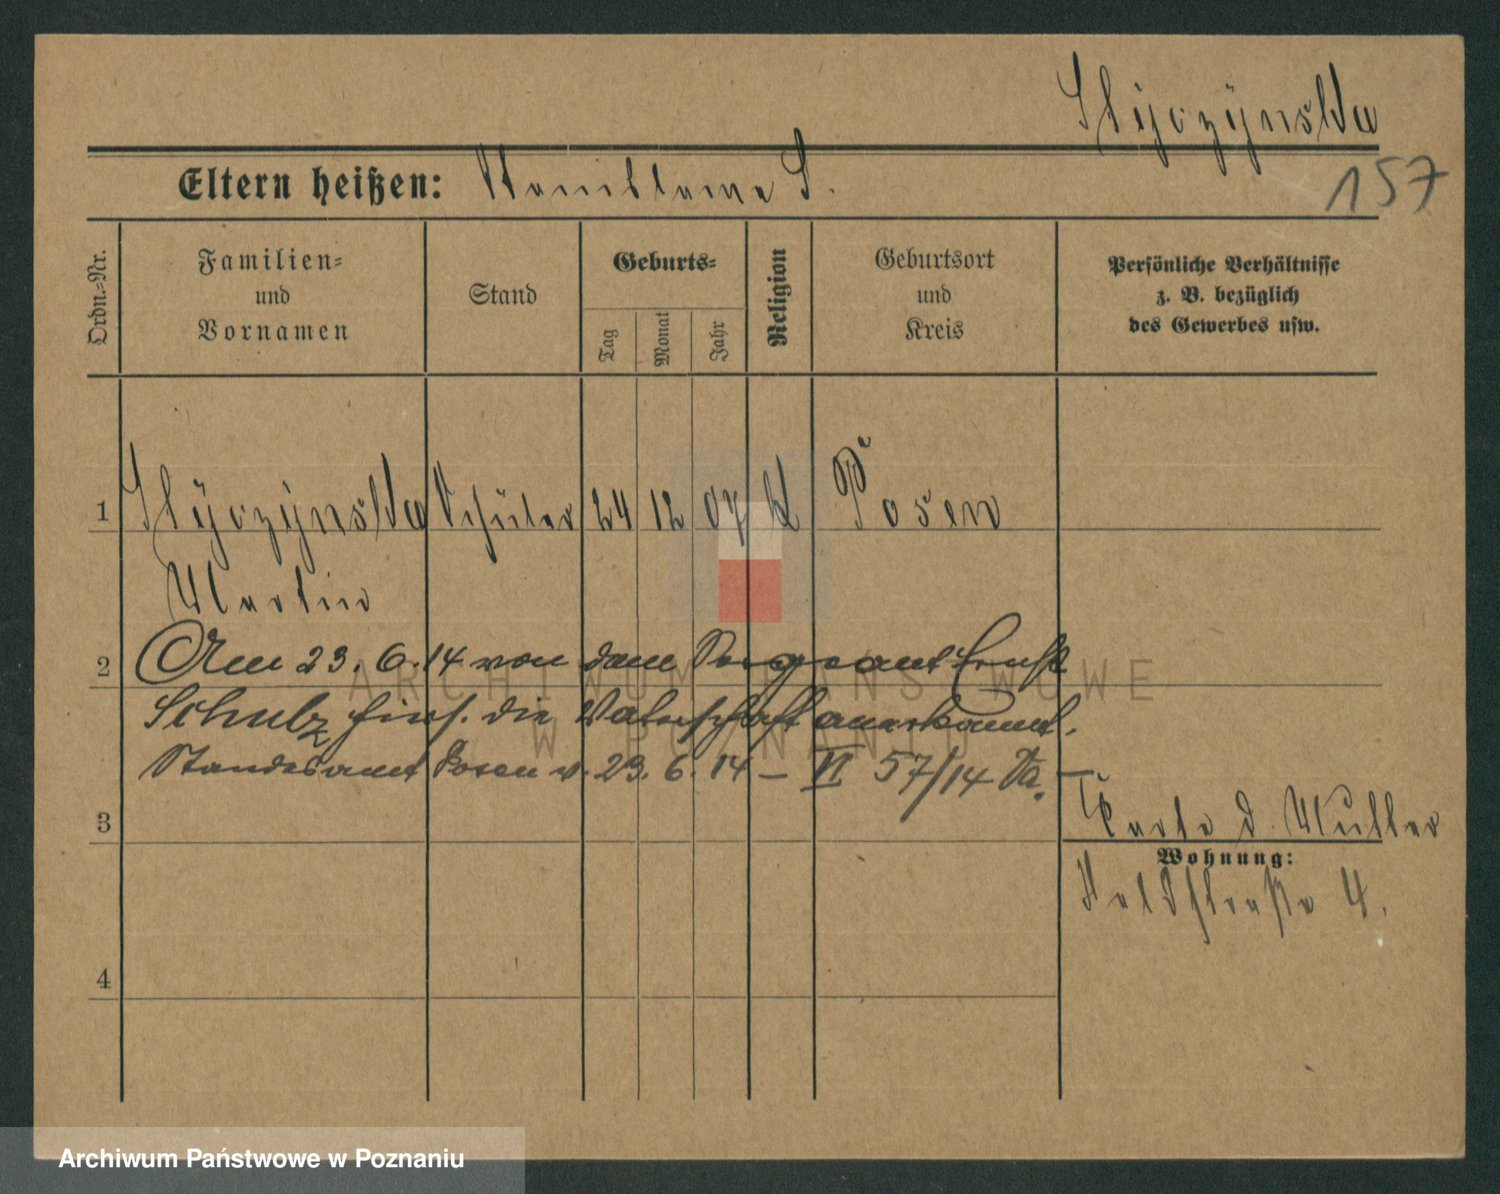 Slyczynska
157
Eltern heißen: Stanislawa S.
Ordn.=Nr.
Familien=
und
Vornamen
Stand
Geburts=
Tag
Monat
Jahr
Religion
Geburtsort
und
Kreis
Persönliche Verhältnisse
z. B. bezüglich
des Gewerbes usw.
1 Schüler 24 12 07 K Posen
Martin
2 Am 23. 6. 14 von dem Sergeant Ernst
Schulz hies. die Vaterschaft anerkannt.
Standesamt Posen v. 23. 6. 14 – VI 57/14 Va. –
3
Karte d. Mutter
Wohnung:
Feldstraße 4.
4
ARCHIWUM PAŃSTWOWE
W POZNANIU
Archiwum Państwowe w Poznaniu